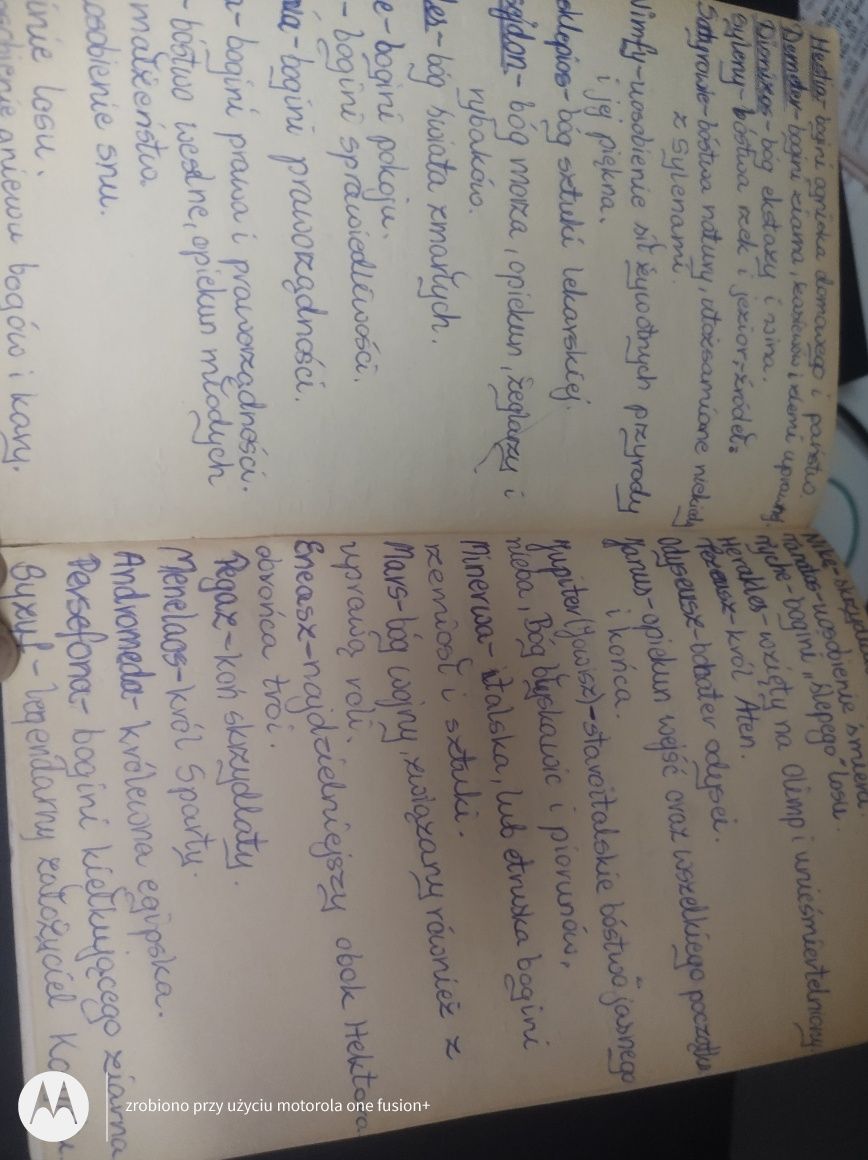 Hestia - bogini ogniska domowego i państwo.
Demeter - bogini ziarna, i ziemi uprawnej.
Dionizos - bóg ekstazy i wina.
Syleny - bóstwa rzek i jezior, źródeł.
Satyrowie - bóstwa natury, utożsamiane niekiedy
z Sylenami.
Nimfy - uosobienie sił żywotnych przyrody
i jej piękna.
sklepios - bóg sztuki lekarskiej.
- bóg morza, opiekun, żeglarzy i
rybaków.
- bóg świata zmarłych.
e - bogini pokoju.
- bogini sprawiedliwości.
- bogini praworządności.
a - bogini prawa i praworządności.
- bóstwo weselne, opiekun młodych
małżeństw.
osobienie snu.
losu.
gniewu bogów i kary.
Nike -
Tanatos - uosobienie śmierci.
Tyche - bogini "ślepego" losu.
Herakles - wzięty na Olimp i unieśmiertelniony.
Tezeusz - król Aten.
Odyseusz - bohater odysei.
Janus - opiekun wejść oraz wszelkiego początku
i końca.
Jupiter (Jowisz) - staroitalskie bóstwo "jasnego
nieba, Bóg błyskawic i piorunów,
Minerwa - italska, lub etruska bogini
rzemiosł i sztuki.
Mars - bóg wojny, związany również z
uprawą roli.
Eneasz - najdzielniejszy obok Hektora
obrońca troi.
Pegaz - koń skrzydlaty.
Menelaos - król Sparty.
Andromeda - królewna egipska.
Persefona - bogini kiełkującego ziarna
Syzyf - legendarny założyciel
zrobiono przy użyciu motorola one fusion+